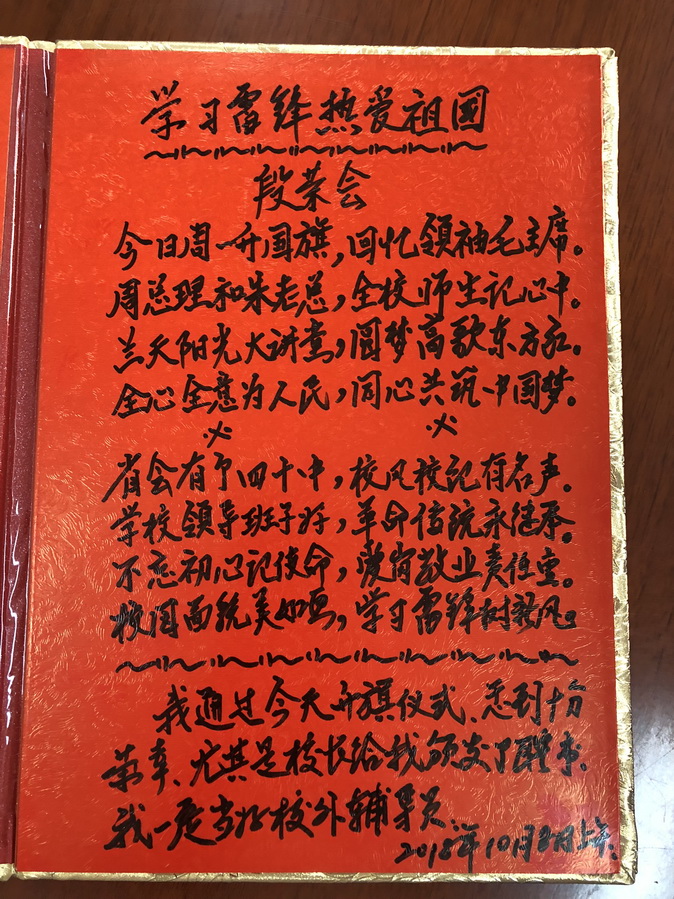 学习雷锋热爱祖国
段荣会
今日周一升国旗，回忆领袖毛主席。
周总理和朱老总，全校师生记心中。
兰天阳光大讲堂，圆梦高歌东方红。
全心全意为人民，同心共筑中国梦。
省会有个四十中，校风校纪有名声。
学校领导班子好，革命传统永继承。
不忘初心记使命，爱岗敬业责任重。
校园面貌美如画，学习雷锋树新风。
我通过今天升旗仪式、感到十分
荣幸、尤其是校长给我颁发了聘书、
我一定当好校外辅导员、
2018年10月8日上午、